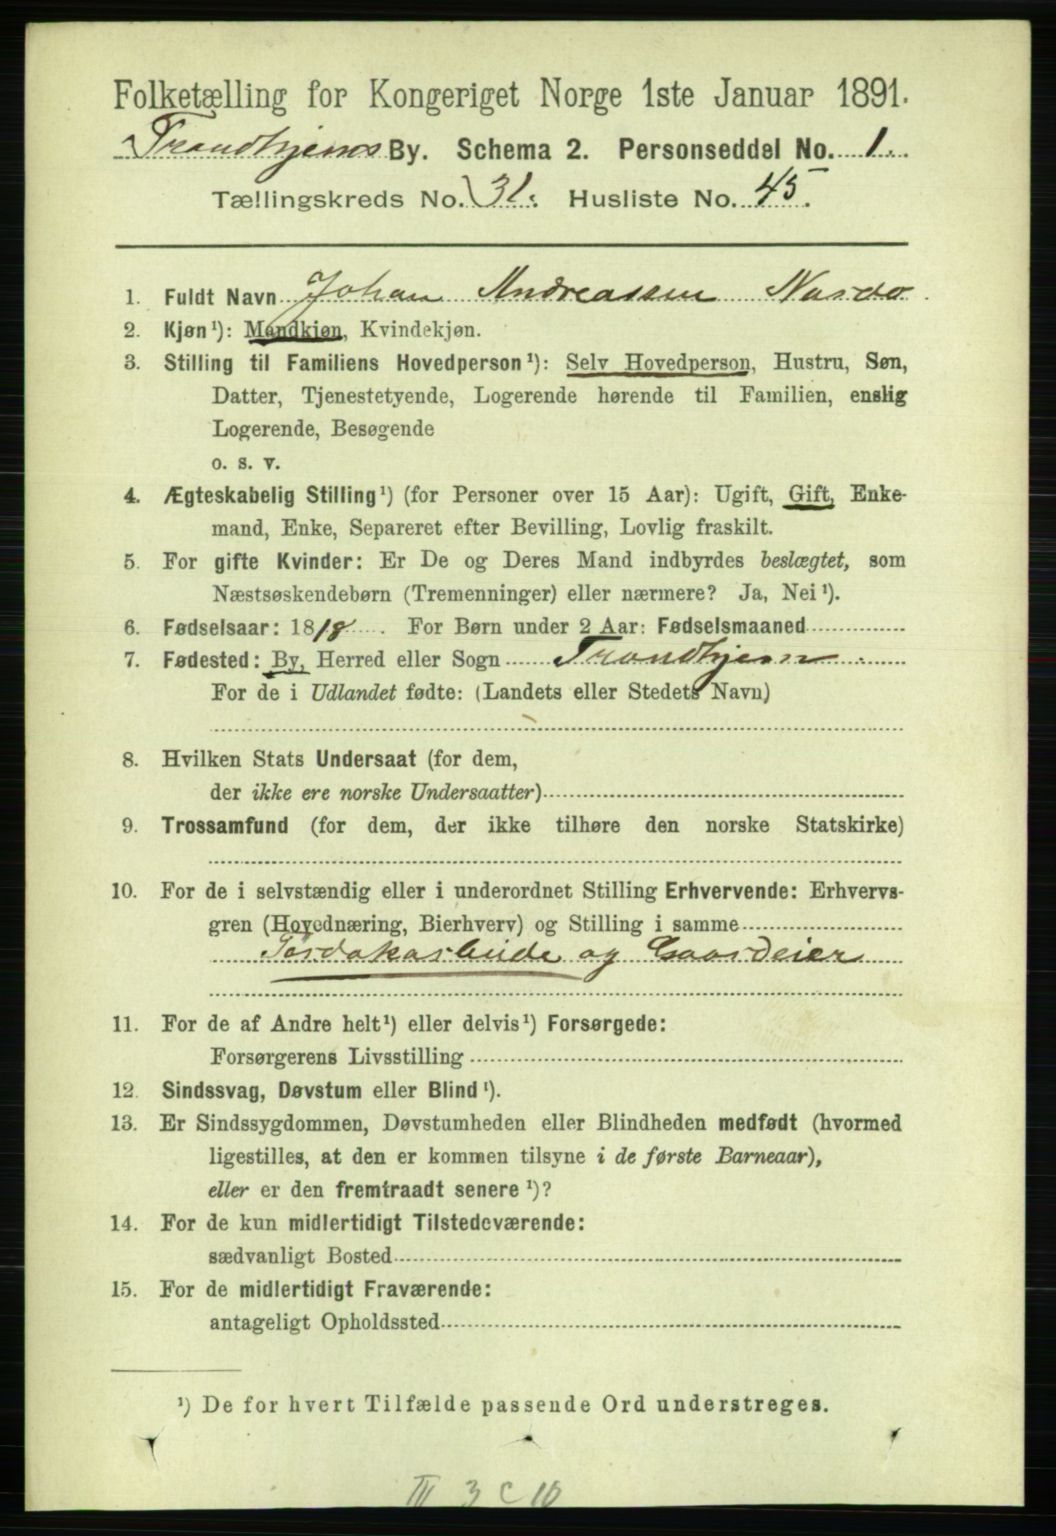 Folketælling for Kongeriget Norge 1ste Januar 1891.
Trondhjems By. Schema 2. Personseddel No. 1.
Tællingskreds No. 31. Husliste No. 45.
1. Fuldt Navn Johan Andreassen Nardo
2. Kjøn¹): Mandkjøn, Kvindekjøn.
3. Stilling til Familiens Hovedperson¹): Selv Hovedperson, Hustru, Søn,
Datter, Tjenestetyende, Logerende hørende til Familien, enslig
Logerende, Besøgende
o. s. v.
4. Ægteskabelig Stilling¹) (for Personer over 15 Aar): Ugift, Gift, Enke-
mand, Enke, Separeret efter Bevilling, Lovlig fraskilt.
5. For gifte Kvinder: Er De og Deres Mand indbyrdes beslægtet, som
Næstsøskendebørn (Tremenninger) eller nærmere? Ja, Nei¹).
6. Fødselsaar: 1818. For Børn under 2 Aar: Fødselsmaaned
7. Fødested: By, Herred eller Sogn Trondhjem
For de i Udlandet fødte: (Landets eller Stedets Navn)
8. Hvilken Stats Undersaat (for dem,
der ikke ere norske Undersaatter)
9. Trossamfund (for dem, der ikke tilhøre den norske Statskirke)
10. For de i selvstændig eller i underordnet Stilling Erhvervende: Erhvervs-
gren (Hovednæring, Bierhverv) og Stilling i samme
og Gaardeier
11. For de af Andre helt¹) eller delvis¹) Forsørgede:
Forsørgerens Livsstilling
12. Sindssvag, Døvstum eller Blind¹).
13. Er Sindssygdommen, Døvstumheden eller Blindheden medfødt (hvormed
ligestilles, at den er kommen tilsyne i de første Barneaar),
eller er den fremtraadt senere¹)?
14. For de kun midlertidigt Tilstedeværende:
sædvanligt Bosted
15. For de midlertidigt Fraværende:
antageligt Opholdssted
¹) De for hvert Tilfælde passende Ord understreges.
III 3 C 10